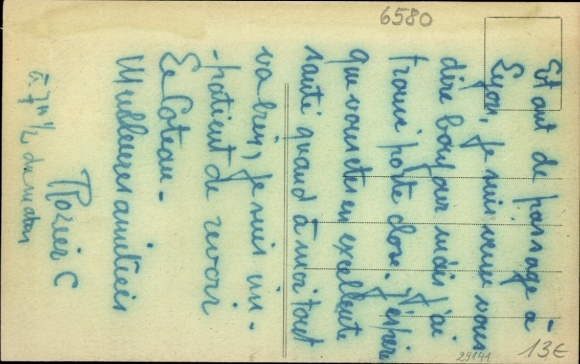 Etant de passage à
Lyon, je suis venue vous
dire bonjour mais j'ai
trouvé porte close. J'espère
que vous êtes en excellente
santé quand à moi tout
va bien, je suis im-
-patient de revoir
Le Coteau.
Meilleures amitiés
Rozier C
à 7h 1/2 du matin
6580
29141
13€